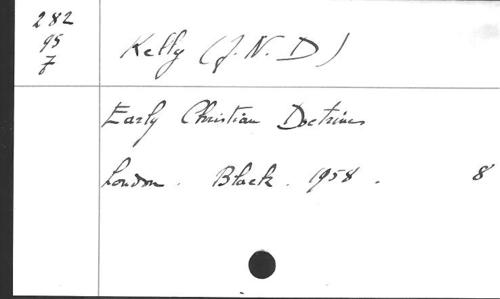 282
95
7
Kelly (J. N. D)
Early Christian Doctrines
London. Black. 1958. 8